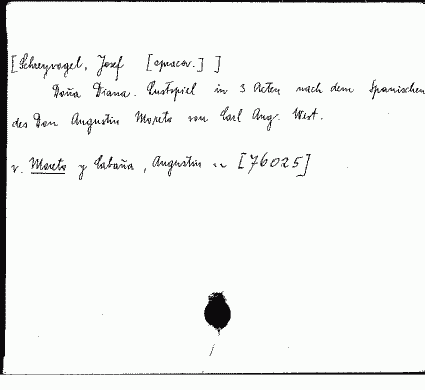 [Schreyvogel, Josef [opracov.] ]
Doña Diana. Lustspiel in 3 Acten nach dem Spanischen
des Don Augustin Moreto von Carl Aug. West.
v. Moreto y Cabaña, Augustin [76025]